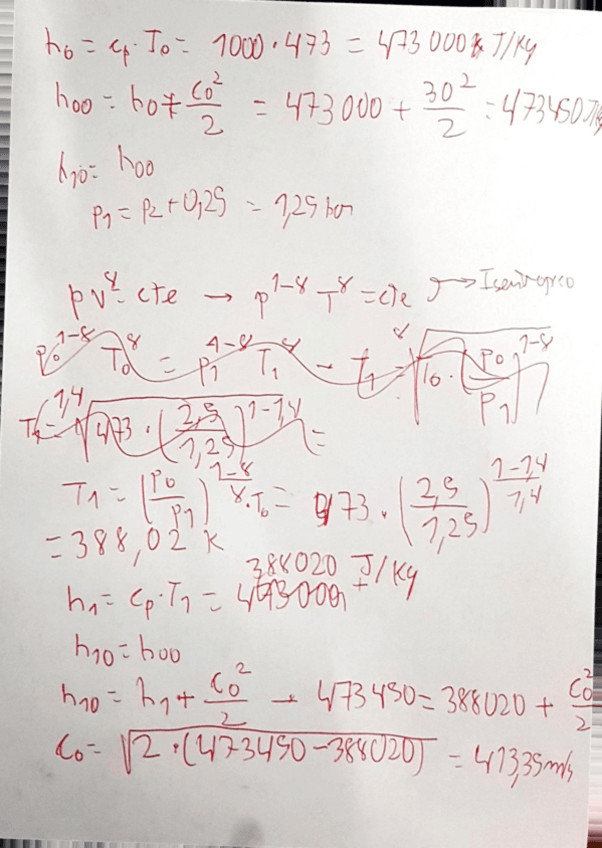 h₀ = cp · T₀ = 1000 · 473 = 473 000 J/kg
h₀₀ = h₀ + C₀²/2 = 473 000 + 30²/2 = 473450 J/kg
h₁₀ = h₀₀
P₁ = P₂ + 0,25 = 1,25 bar
pv^γ = cte → p^(1-γ) T^γ = cte → Isentropico
P₀^(1-γ) T₀^γ = P₁^(1-γ) T₁^γ → T₁ = ^γ√(T₀ · (P₀/P₁)^(1-γ))
T₁ = ^1,4√(473 · (2,5/1,25)^(1-1,4)) =
T₁ = (P₀/P₁)^((1-γ)/γ) · T₀ = 473 · (2,5/1,25)^((1-1,4)/1,4)
= 388,02 K
388020 J/kg
h₁ = cp · T₁ = 473000
h₁₀ = h₀₀
h₁₀ = h₁ + C₀²/2 → 473450 = 388020 + C₀²/2
C₀ = √(2 · (473450 - 388020)) = 413,35 m/s